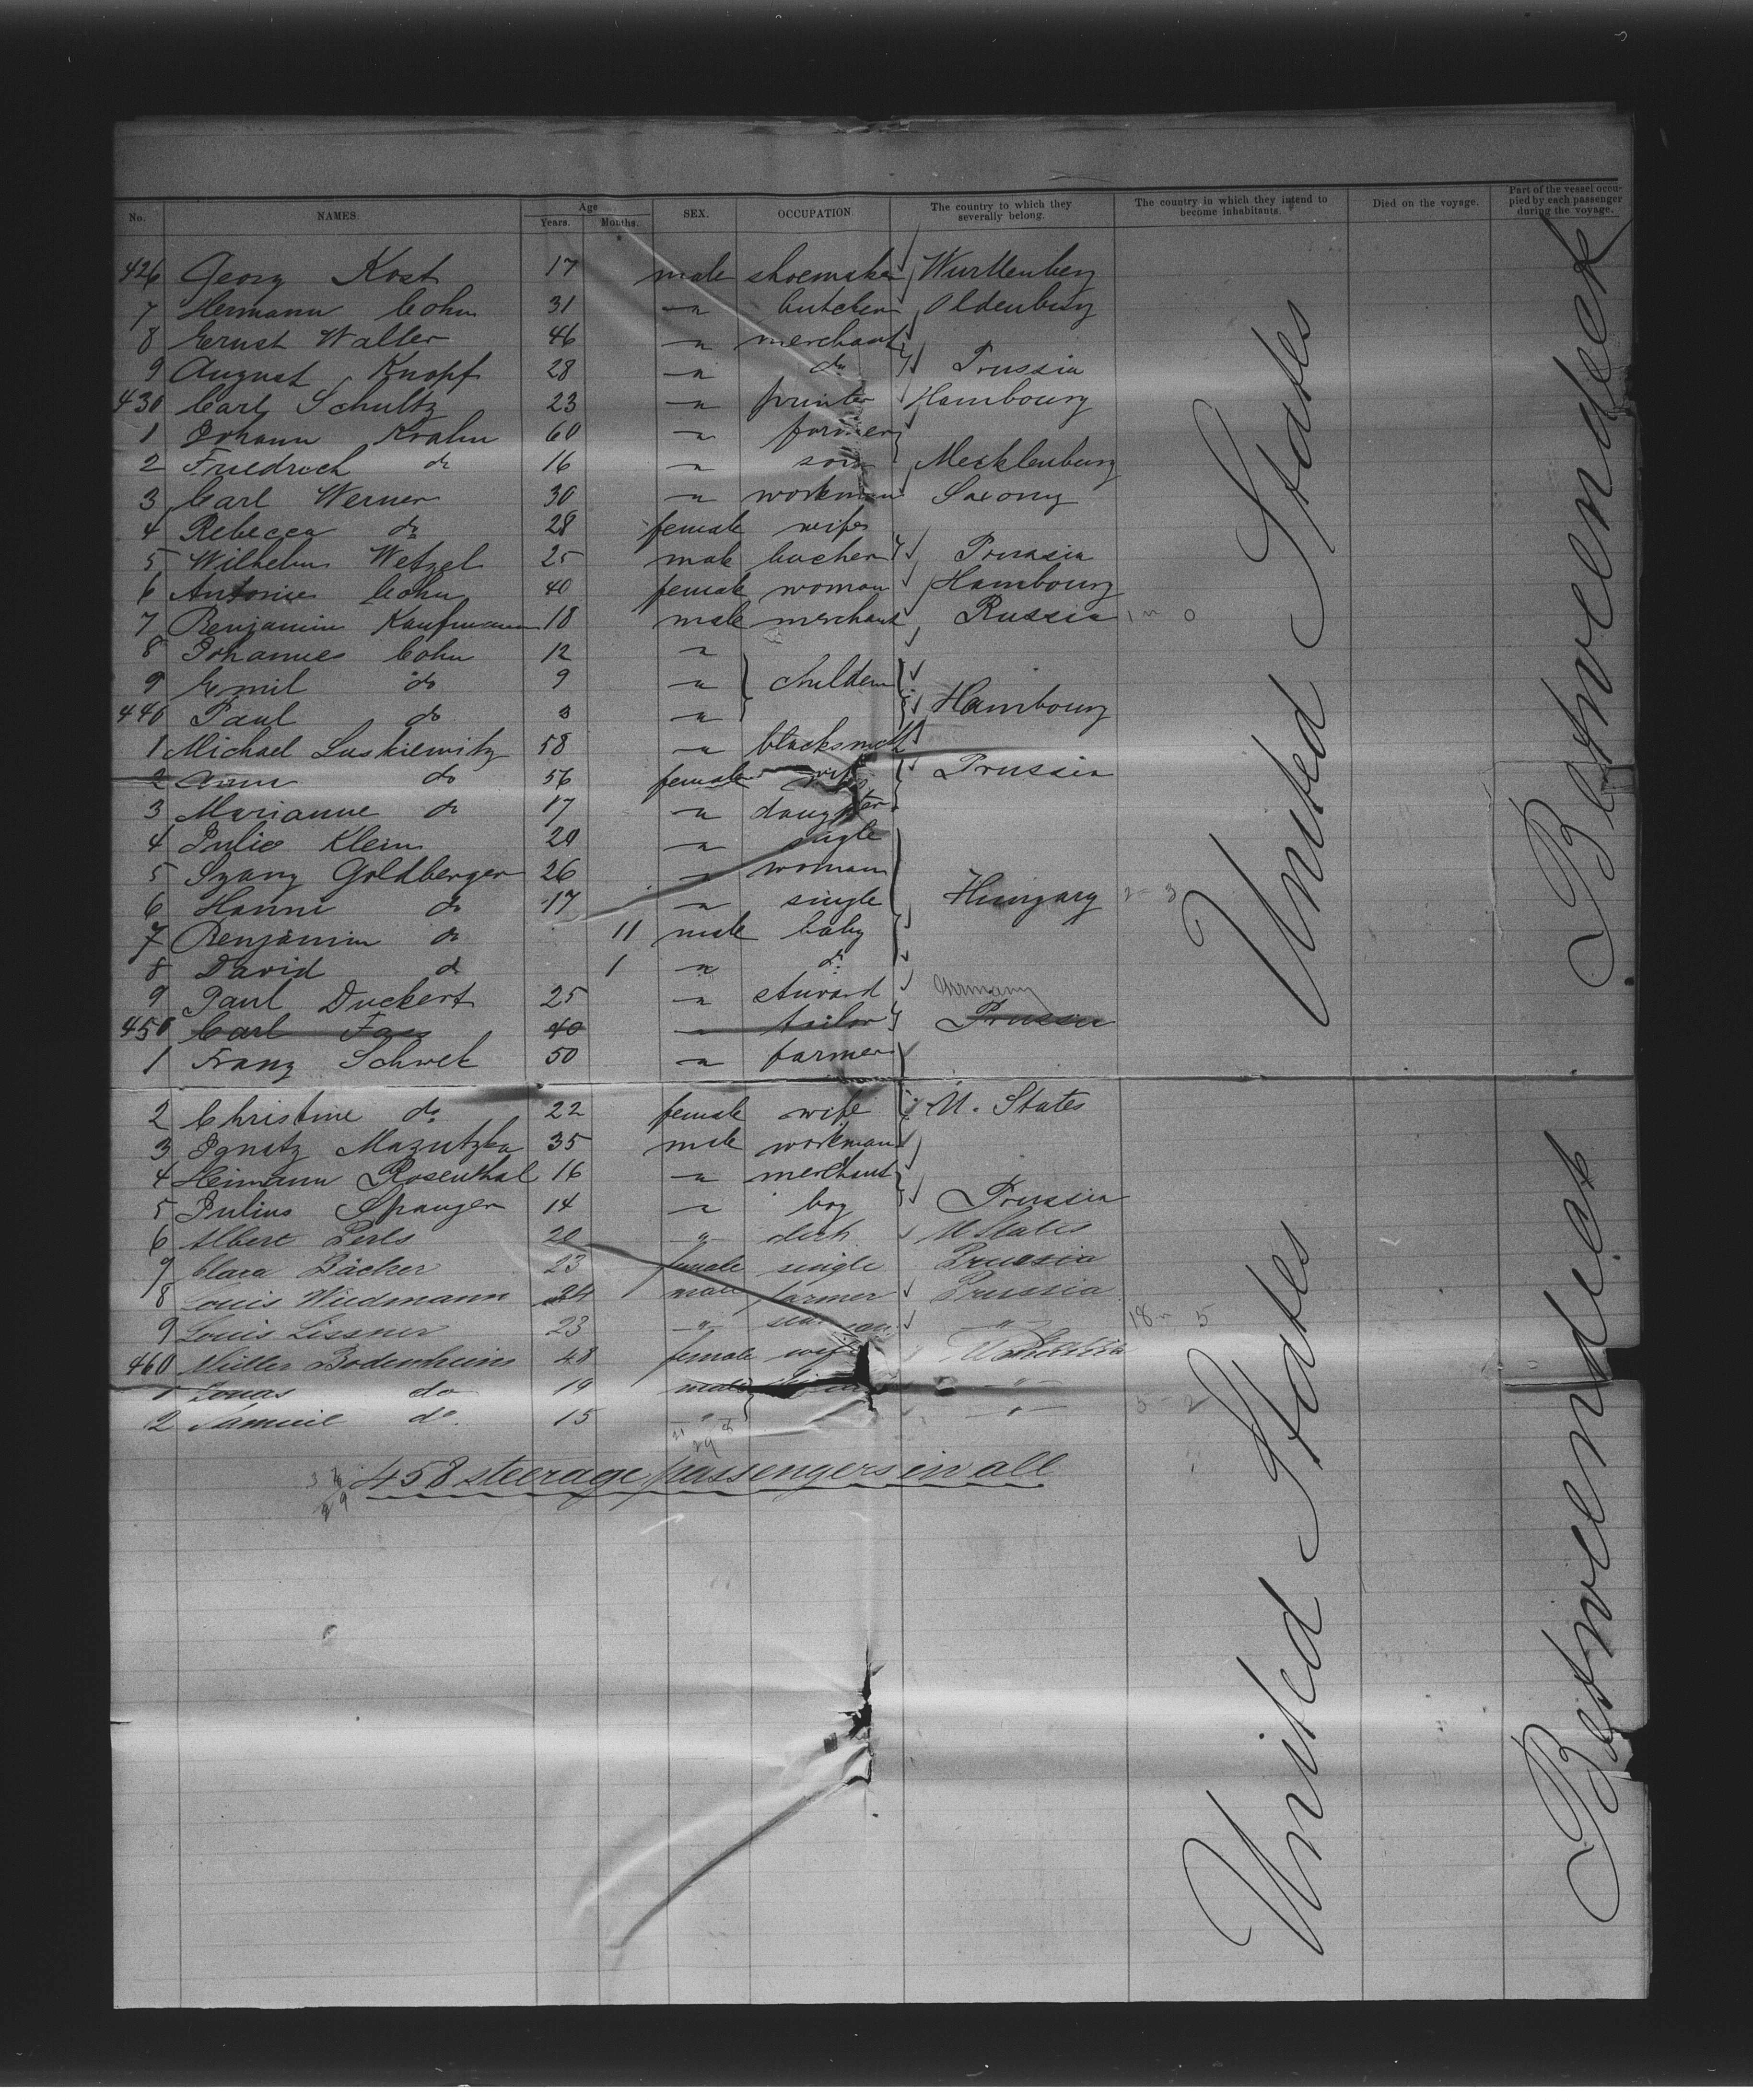 No. NAMES. Age Years. Months. SEX. OCCUPATION. The country to which they severally belong. The country in which they intend to become inhabitants. Died on the voyage. Part of the vessel occupied by each passenger during the voyage.
426 Georg Kost 17 male shoemaker Wurttenberg
7 Hermann Cohn 31 " butcher Oldenburg
8 Ernst Walter 46 " merchant
9 August Knopf 28 " do Prussia
430 Carl Schultz 23 " printer Hambourg
1 Johann Krahn 60 " farmer
2 Friedrich do 16 " son Mecklenburg
3 Carl Werner 30 " workman Saxony
4 Rebecca do 28 female wife
5 Wilhelm Wetzel 25 male bucher Prussia
6 Antonie Cohn 40 female woman Hambourg
7 Benjamin Kaufmann 18 male merchant Russia
8 Johannes Cohn 12 "
9 Emil do 9 " childern
440 Paul do 3 " Hambourg
1 Michael Luskiewitz 58 " blacksmith
2 Anna do 56 female wife Prussia
3 Marianne do 17 " daughter
4 Julie Klein 20 " single
5 Szany Goldberger 26 " woman
6 Hanni do 17 " single Hungary
7 Benjamin do 11 male baby
8 David do 1 " do
9 Paul Duckert 25 " stuard Germany
450 Carl 40 " tailor Prussia
1 Franz Schwet 50 " farmer
2 Christine do 22 female wife U. States
3 Ignatz Mazutzka 35 male workman
4 Heimann Rosenthal 16 " merchant
5 Julius Spanger 14 " boy Prussia
6 Albert Perls 20 " clerk U States
7 Clara Bäcker 23 female single Prussia
8 Louis Wiedmann 24 male farmer Prussia
9 Louis Lissner 23 " "
460 Bodenheim 48 female wife
1 Jonas do 19 male "
2 Samuel do. 15 " "
458 steerage passengers in all
United States
United States
Betweendeck
Betweendeck